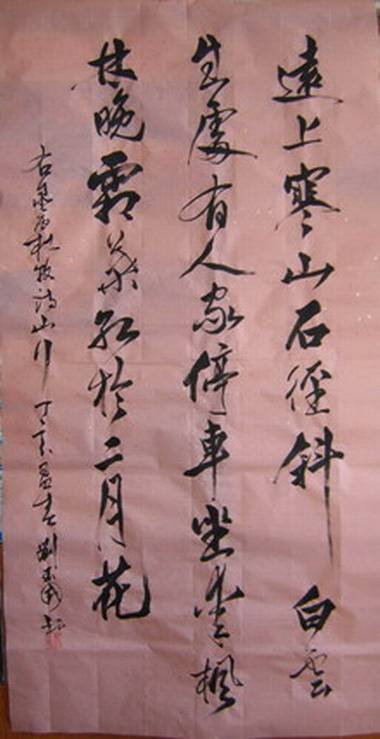 遠上寒山石徑斜白雲
生處有人家停車坐愛楓
林晚霜葉紅於二月花
右杜牧诗山行丁亥春